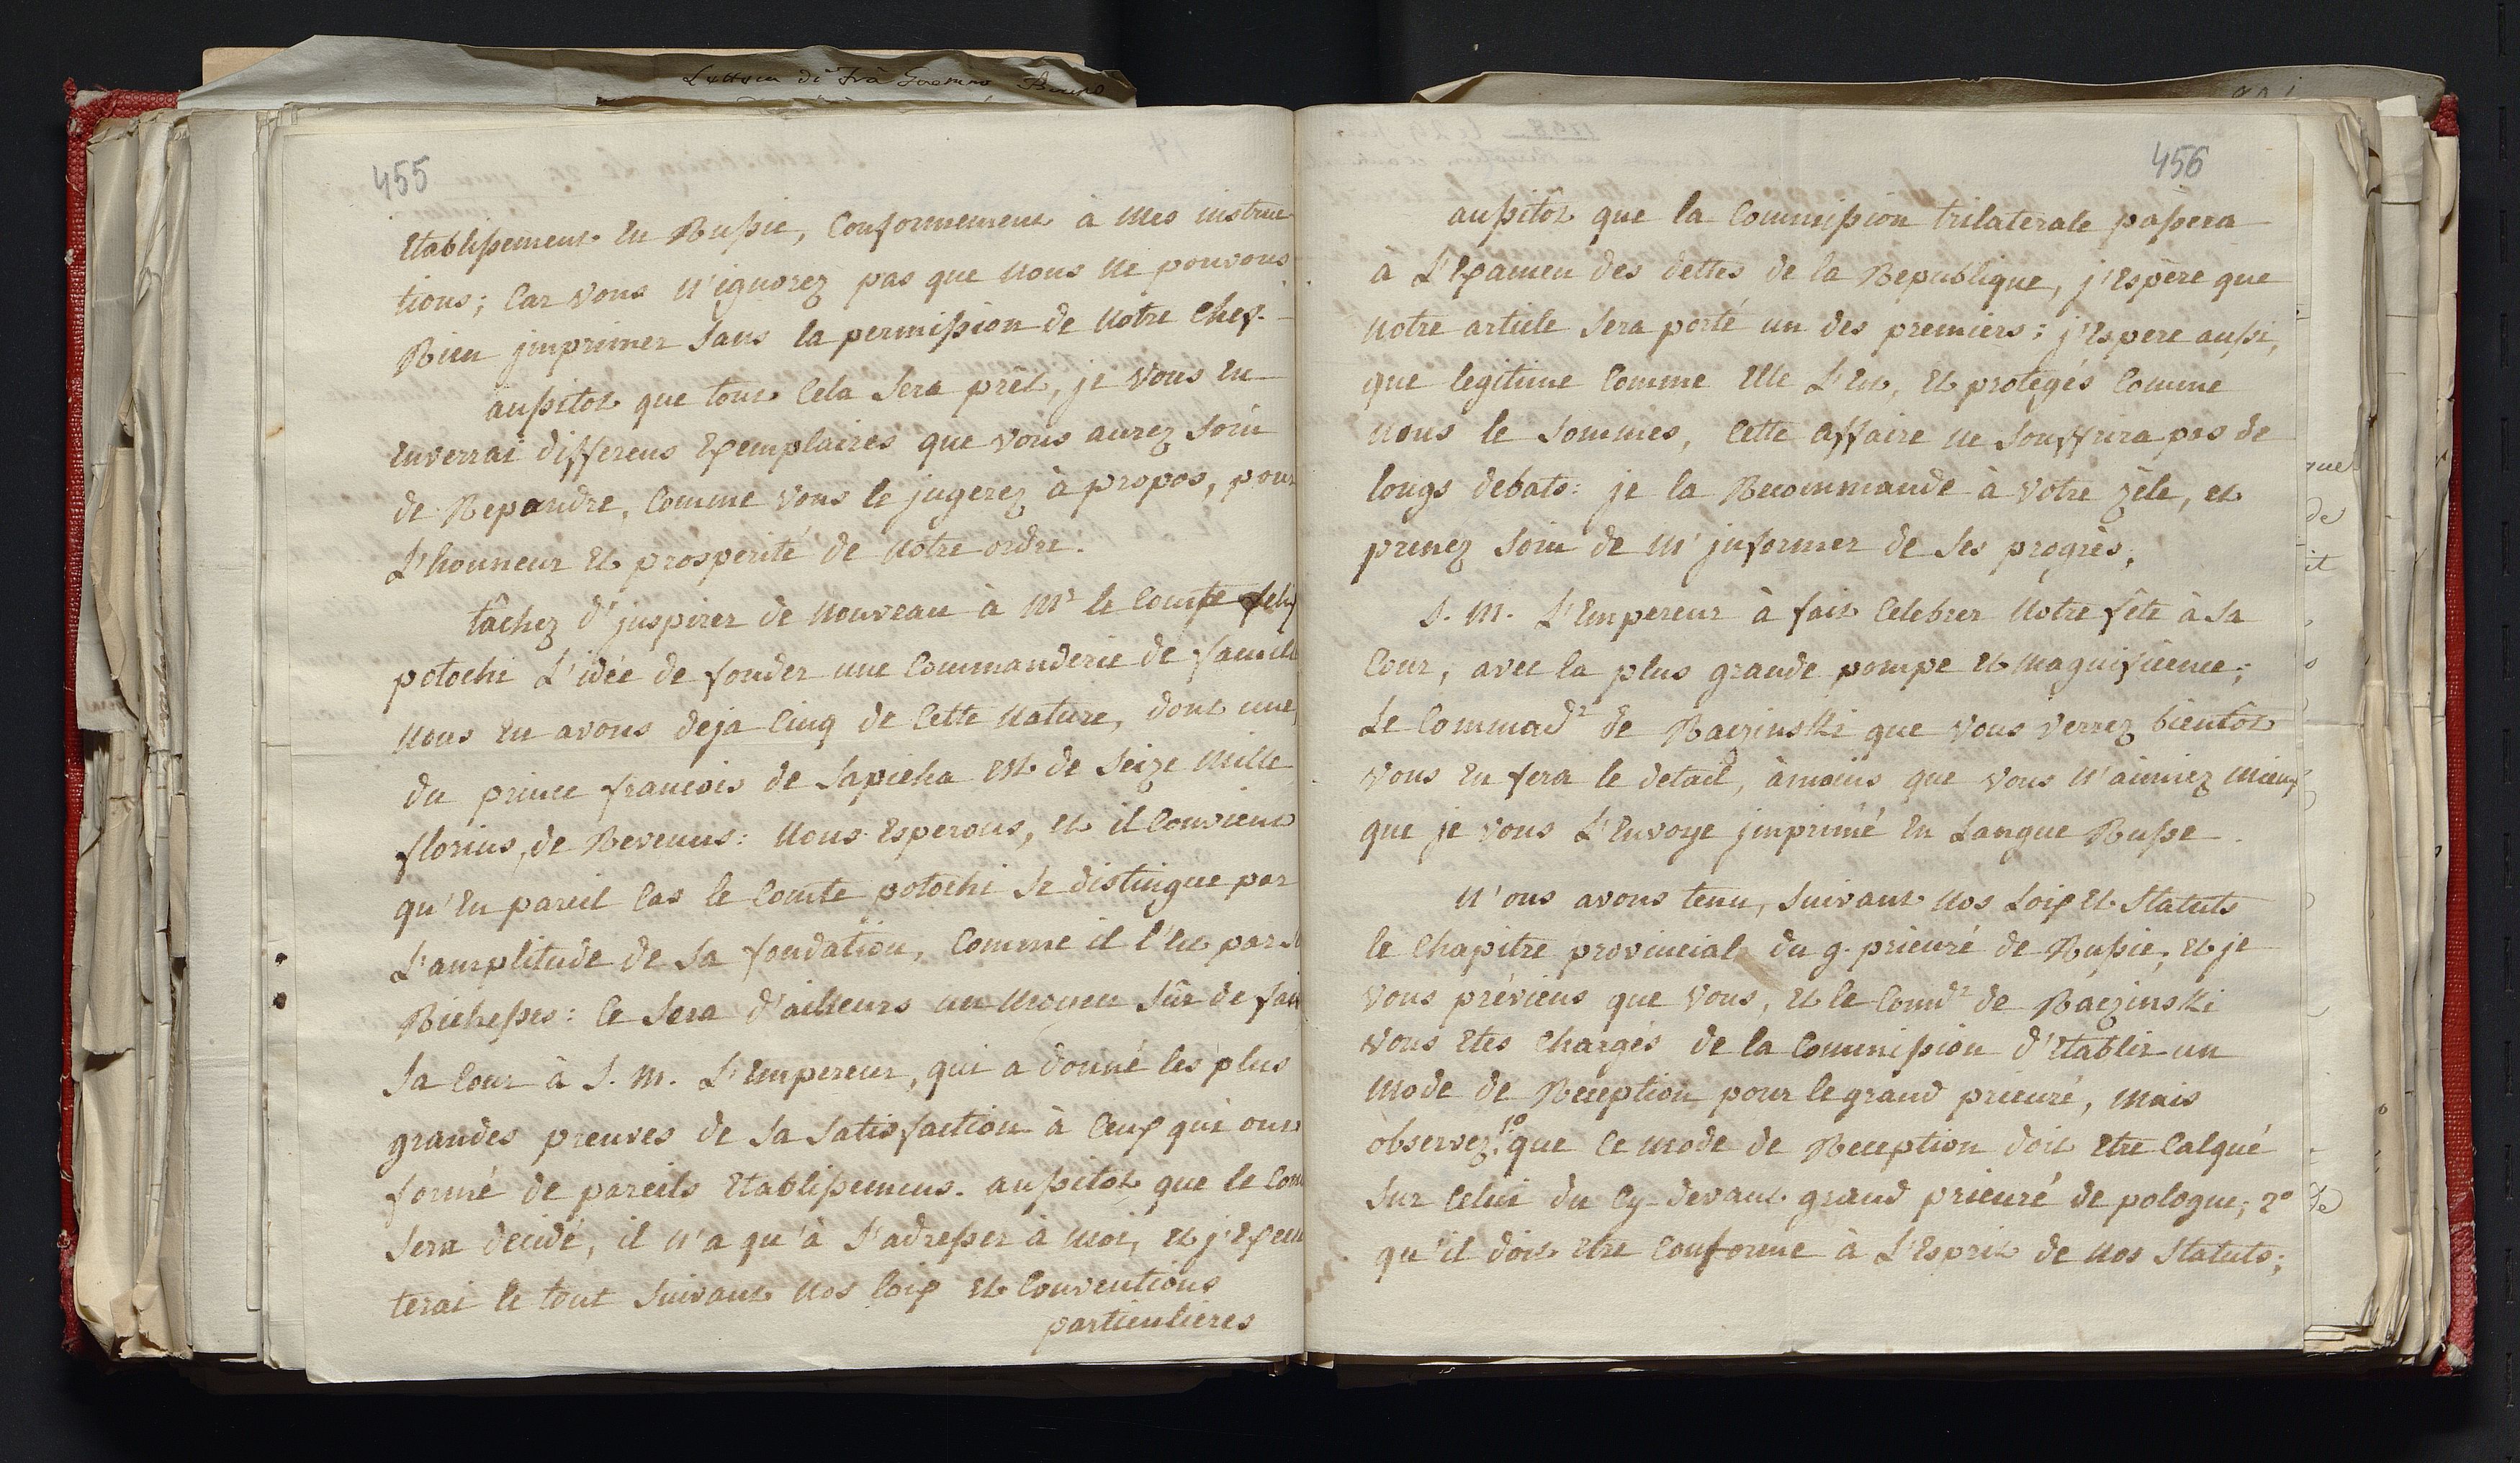 Lettera di Frà
455
Etablissement en Russie, Conformement à mes instruc
tions; Car vous n'ignorez pas que nous ne pouvons
Rien jmprimer sans la permission de notre chef.
aussitot que tout Cela sera prêt, je vous en
enverrai differens Exemplaires que vous aurez soin
de Repandre, Comme vous le jugerez à propos, pour
L'honneur et prosperité de notre ordre.
tâchez d'jnspirer de nouveau à Mr le Comte felix
potocki L'idée de fonder une Commanderie de famille
nous en avons deja Cinq de Cette nature, dont une,
du prince francois de Sapieha est de Seize mille
florins, de Revenus: nous Esperons, et il Convient
qu'en pareil Cas le Comte potocki se distingue par
L'amplitude de sa fondation, Comme il l'est par
Richesses: Ce sera d'ailleurs un moyen sûr de fair
sa Cour à S. M. L'Empereur, qui a donné les plus
grandes preuves de sa satisfaction à Ceux qui ont
formé de pareils Etablissemens. aussitot que le Com
sera decidé, il n'a qu'à s'adresser à moi, et j'Execu
terai le tout suivant nos loix et Conventions
particulieres
456
aussitôt que la Commission trilaterale passera
à L'Examen des dettes de la Republique, j'Espère que
notre article sera porté un des premiers: j'Espere aussi,
que legitime Comme Elle L'est, et protegés Comme
nous le sommes, Cette affaire ne souffrira pas de
longs debats: je la Recommande à votre zèle, et
prenez soin de m'jnformer de ses progrès.
S. M. L'Empereur à fait Celebrer notre fête à sa
Cour, avec la plus grande pompe et magnificence;
Le Commadr de Raczinski que vous verrez bientôt
vous en fera le detail, àmoins que vous n'aimiez mieux
que je vous L'Envoye jmprimé en Langue Russe.
N'ous avons tenu, suivant nos Loix et Statuts
le Chapitre provincial du g. prieuré de Russie, et je
vous préviens que vous, et le Comdr de Raczinski
vous etes Chargés de la Commission d'Etablir un
mode de Reception pour le grand prieuré, mais
observez, 1º que Ce mode de Reception doit Etre Calqué
sur Celui du Cy-devant grand prieuré de pologne; 2º
qu'il doit etre Conforme à L'Esprit de nos Statuts;